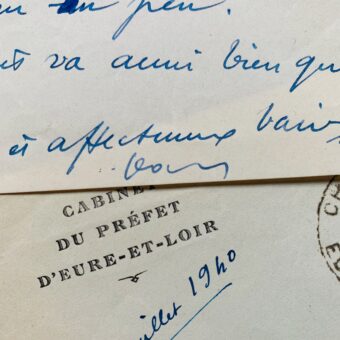 un peu.
va aussi bien qu
et affectueux bais
CABINE
DU PRÉFET
D'EURE-ET-LOIR
illet 1940